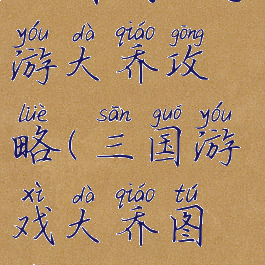 yóu dà qiáo gōng
游大乔攻
lüè sān guó yóu
略(三国游
xì dà qiáo tú
戏大乔图